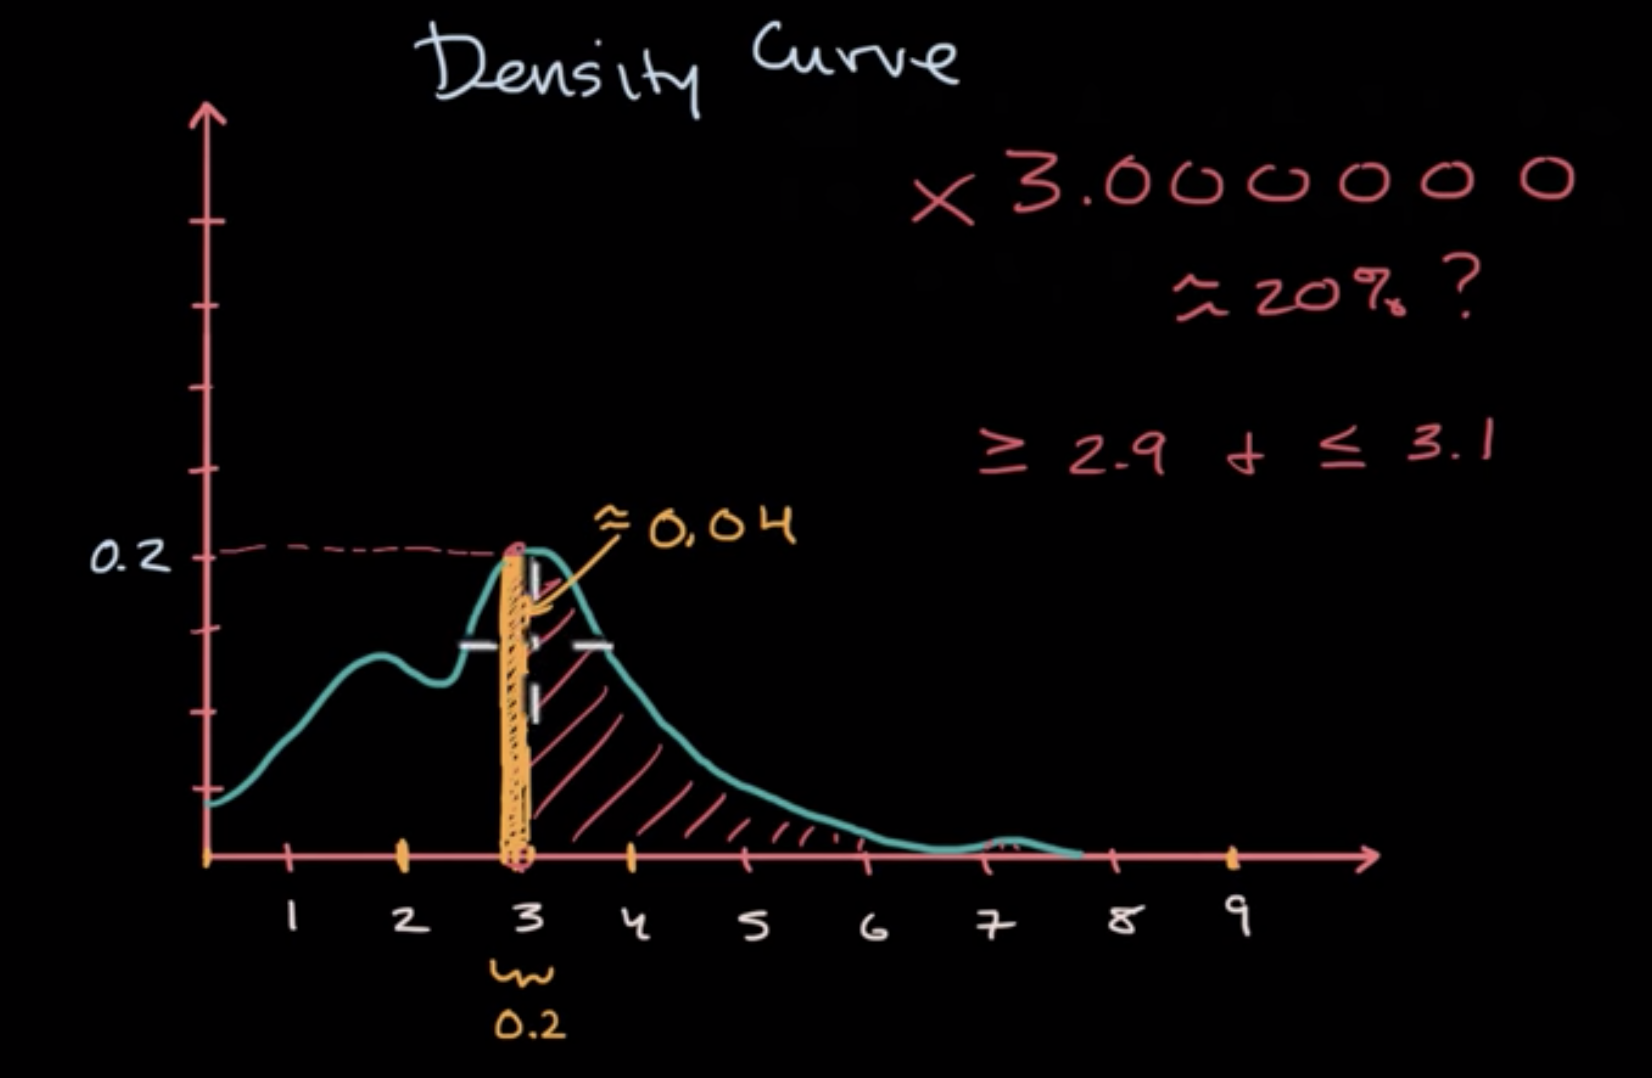 Density Curve
× 3.000000
≈ 20% ?
≥ 2.9 & ≤ 3.1
≈ 0.04
0.2
1 2 3 4 5 6 7 8 9
0.2